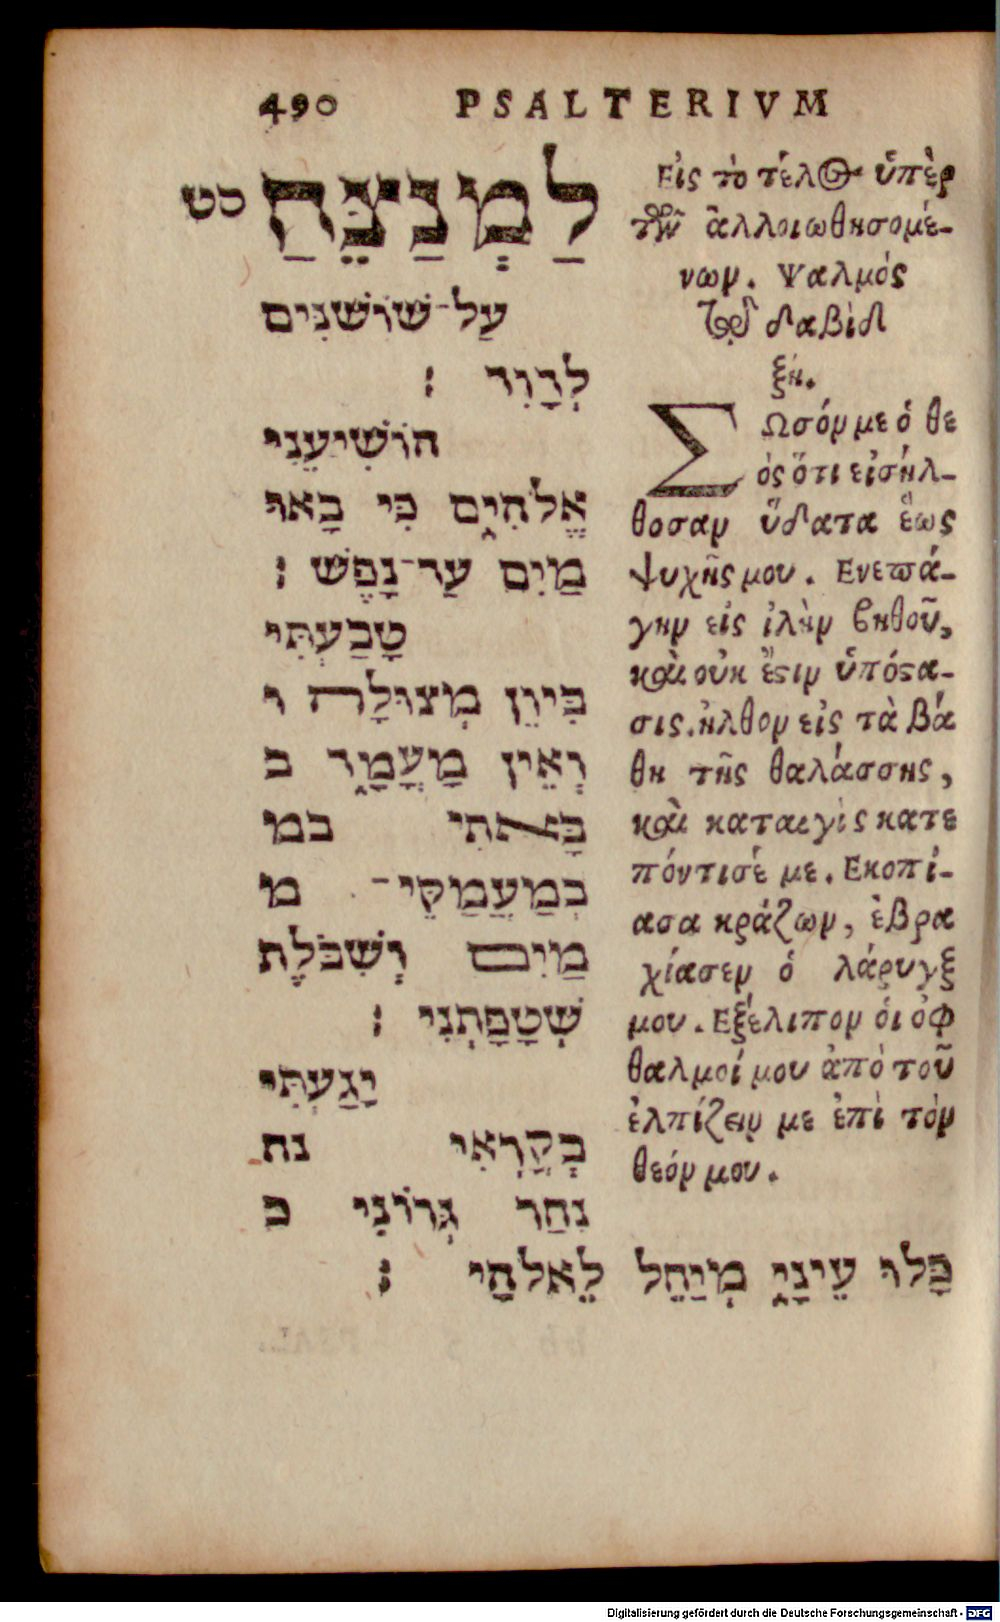 490 PSALTERIVM
לַמְנַצֵּחַ כט
עַל־שׁוֹשַׁנִּים
לְדָוִד ׃
הוֹשִׁיעֵנִי
אֱלֹהִים כִּי בָאוּ
מַיִם עַד־נָפֶשׁ ׃
טָבַעְתִּי
בִּיוֵן מְצוּלָה ו
וְאֵין מָעֳמָד ב
בָּאתִי במ
בְמַעֲמַקֵּי־ מ
מַיִם וְשִׁבֹּלֶת
שְׁטָפָתְנִי ׃
יָגַעְתִּי
בְקָרְאִי נח
נִחַר גְּרוֹנִי כ
כָּלוּ עֵינָי מְיַחֵל לֵאלֹהָי ׃
Εἰς τὸ τέλος ὑπὲρ
τῶν ἀλλοιωθησομέ-
νων. Ψαλμὸς
τῷ δαβὶδ
ξή.
ΣΩσόν με ὁ θε
ὸς ὅτι εἰσήλ-
θοσαν ὕδατα ἕως
ψυχῆς μου. Ενεπά-
γην εἰς ἰλὴν βηθοῦ,
καὶ οὐκ ἔστιν ὑπόστα-
σις. ἠλθον εἰς τὰ βά
θη τῆς θαλάσσης,
καὶ καταιγὶς κατε
πόντισέ με. Εκοπί-
ασα κράζων, ἐβρα
χίασεν ὁ λάρυγξ
μου. Εξέλιπον ὁι ὀφ
θαλμοί μου ἀπὸ τοῦ
ἐλπίζειν με ἐπὶ τὸν
θεόν μου.
Digitalisierung gefördert durch die Deutsche Forschungsgemeinschaft - DFG